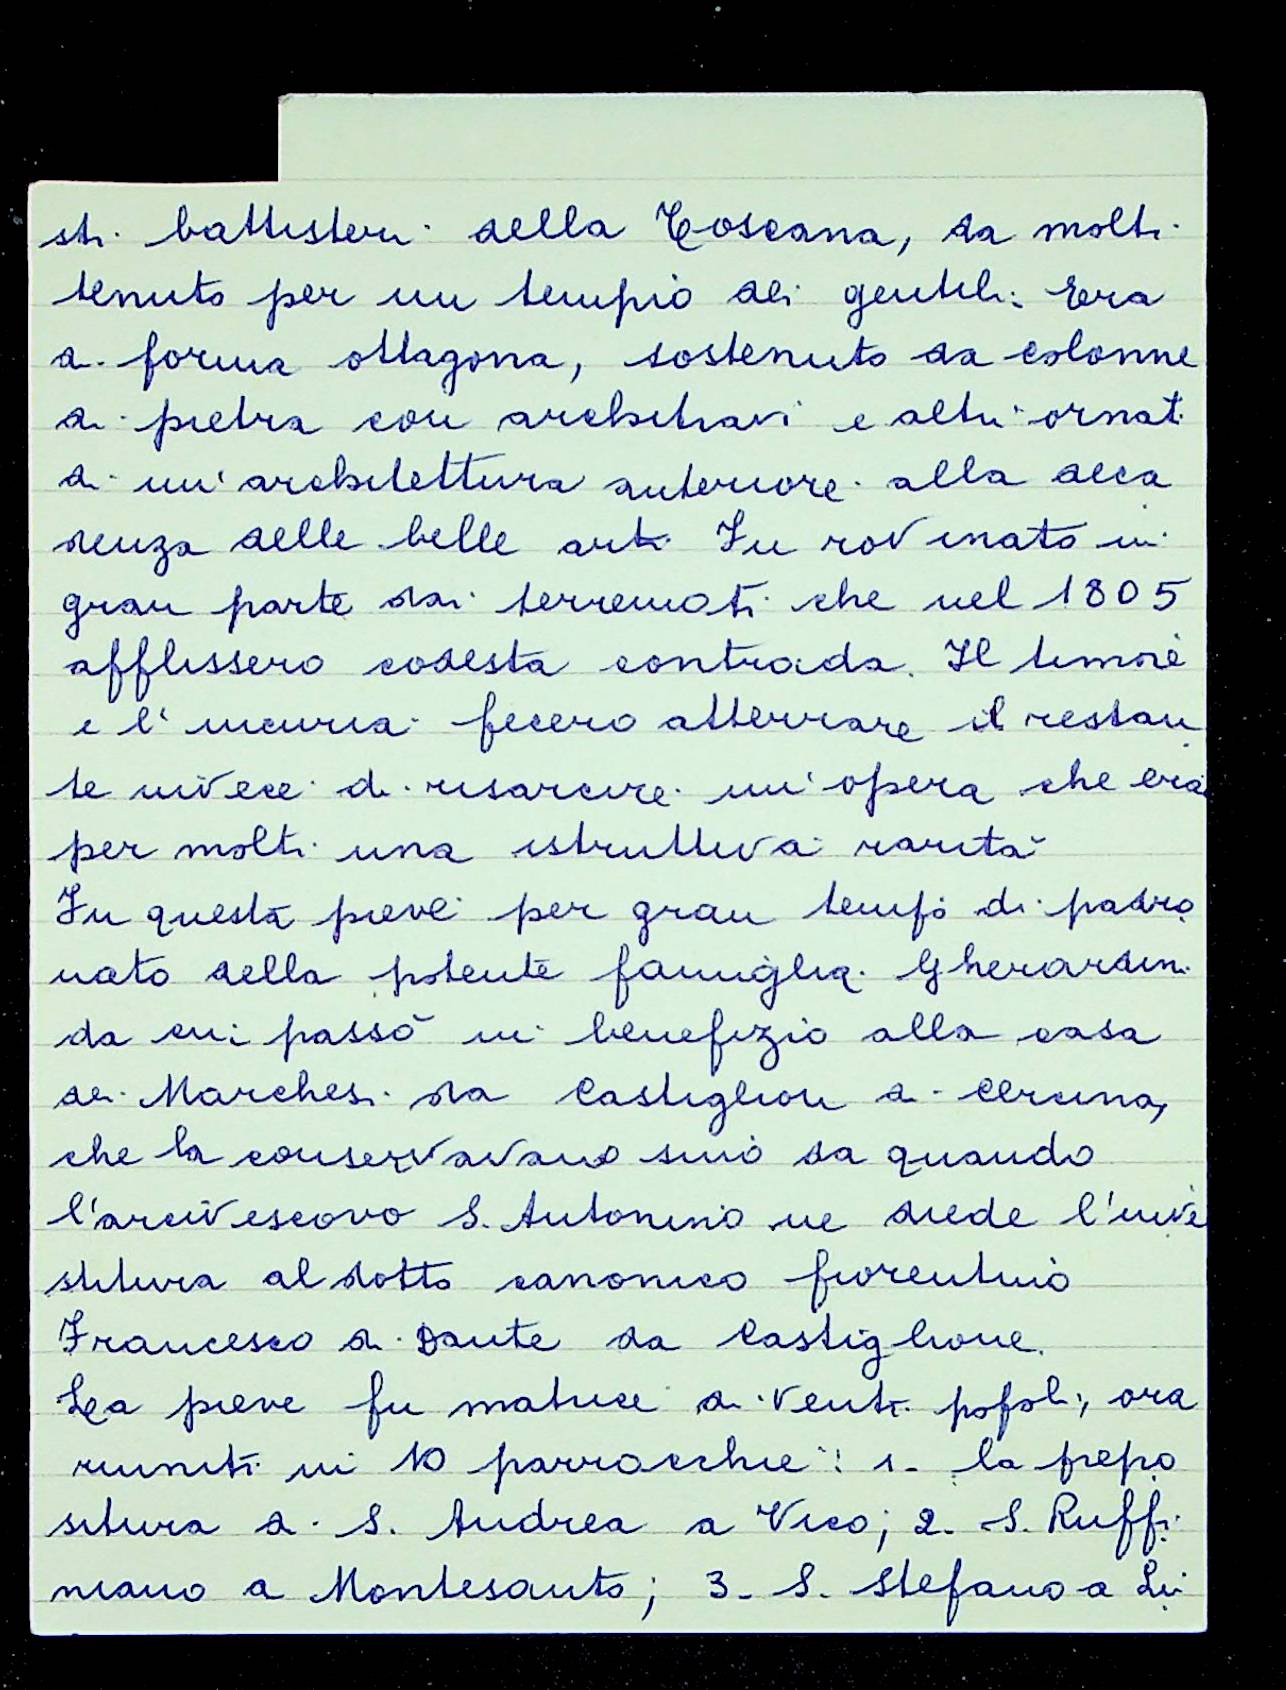 sti battisteri della Toscana, da molti
tenuto per un tempio dei gentili. Era
di forma ottagona, sostenuto da colonne
di pietra con architravi e altri ornati
di un'architettura anteriore alla deca
denza delle belle arti Fu rovinato in
gran parte dai terremoti che nel 1805
afflissero codesta contrada. Il timore
e l'incuria fecero atterrare il restan
te invece di risarcire un'opera che era
per molti una istruttiva rarità
Fu questa pieve per gran tempo di padro
nato della potente famiglia Gherardini
da cui passò in benefizio alla casa
dei Marchesi da Castiglion di Cercina,
che la conservavano sino da quando
l'arcivescovo S. Antonino ne diede l'inve
stitura al dotto canonico fiorentino
Francesco di Dante da Castiglione.
La pieve fu matrice di venti popoli, ora
riuniti in 10 parrocchie: 1- la prepo
situra di S. Andrea a Vico; 2- S. Ruffi
niano a Montesanto; 3- S. Stefano a Lu